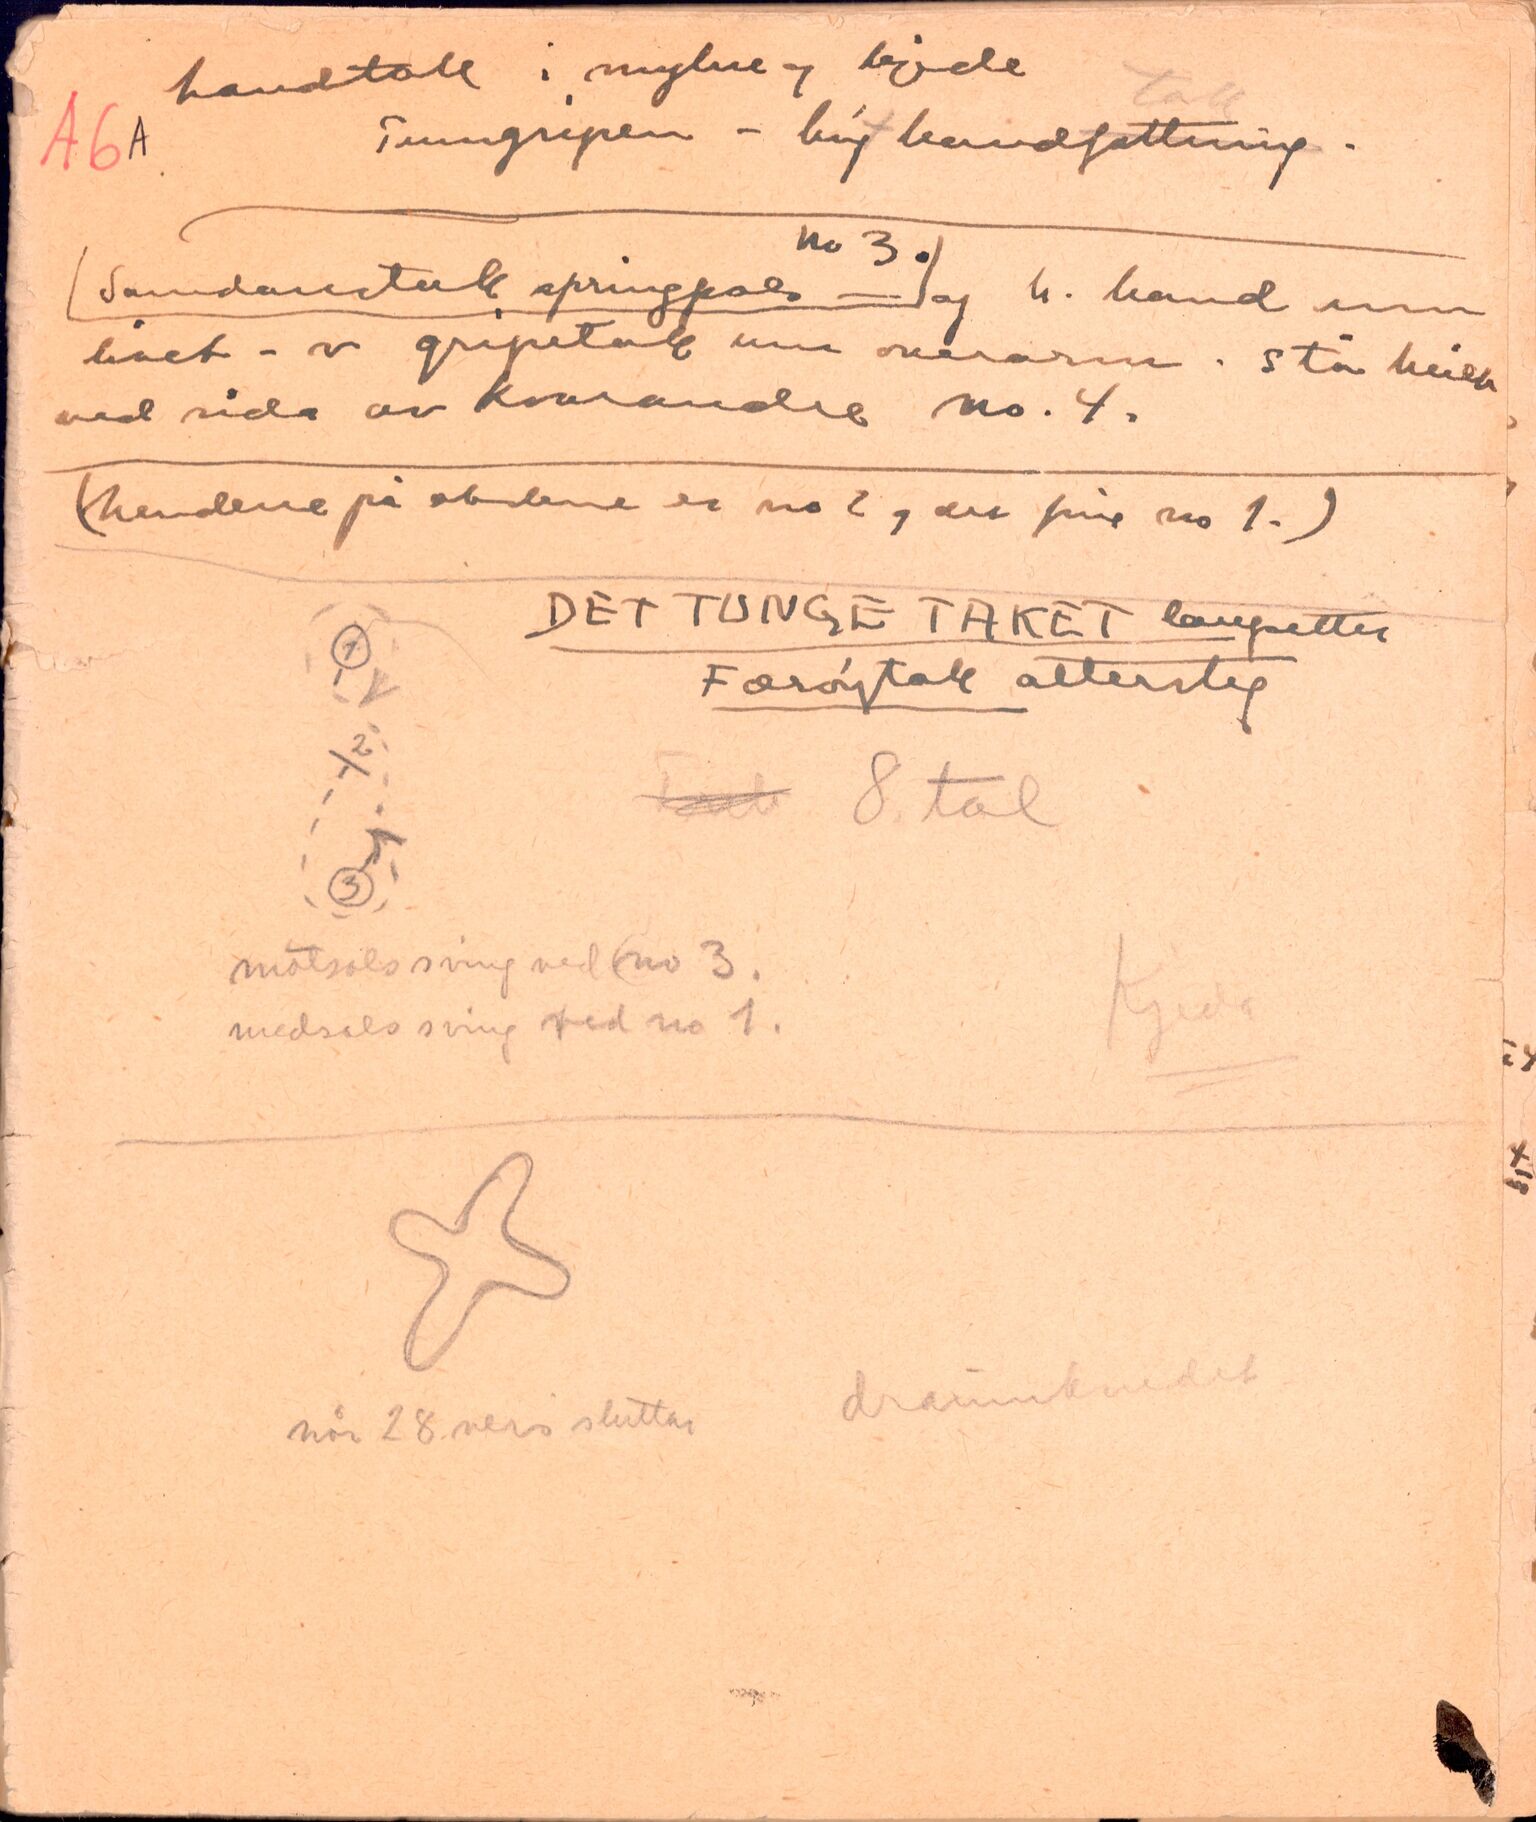 handtak i mylne og bøgde
A6A
tak
Tumgripen - høg handfattning.
no 3.
(Samdanstak springpols —) og h. hand um
livet - v gripetak um overarm. Stå
ved sida av kvarandre no. 4.
(hendene på er no 2, det fine no 1.)
DET TUNGE TAKET
1
Færøytak attersteg
2
8. tal
3
motsols sving ved (no 3.
medsols sving ved no 1.
Kjeda
når 28 vers sluttar
draumkvedet